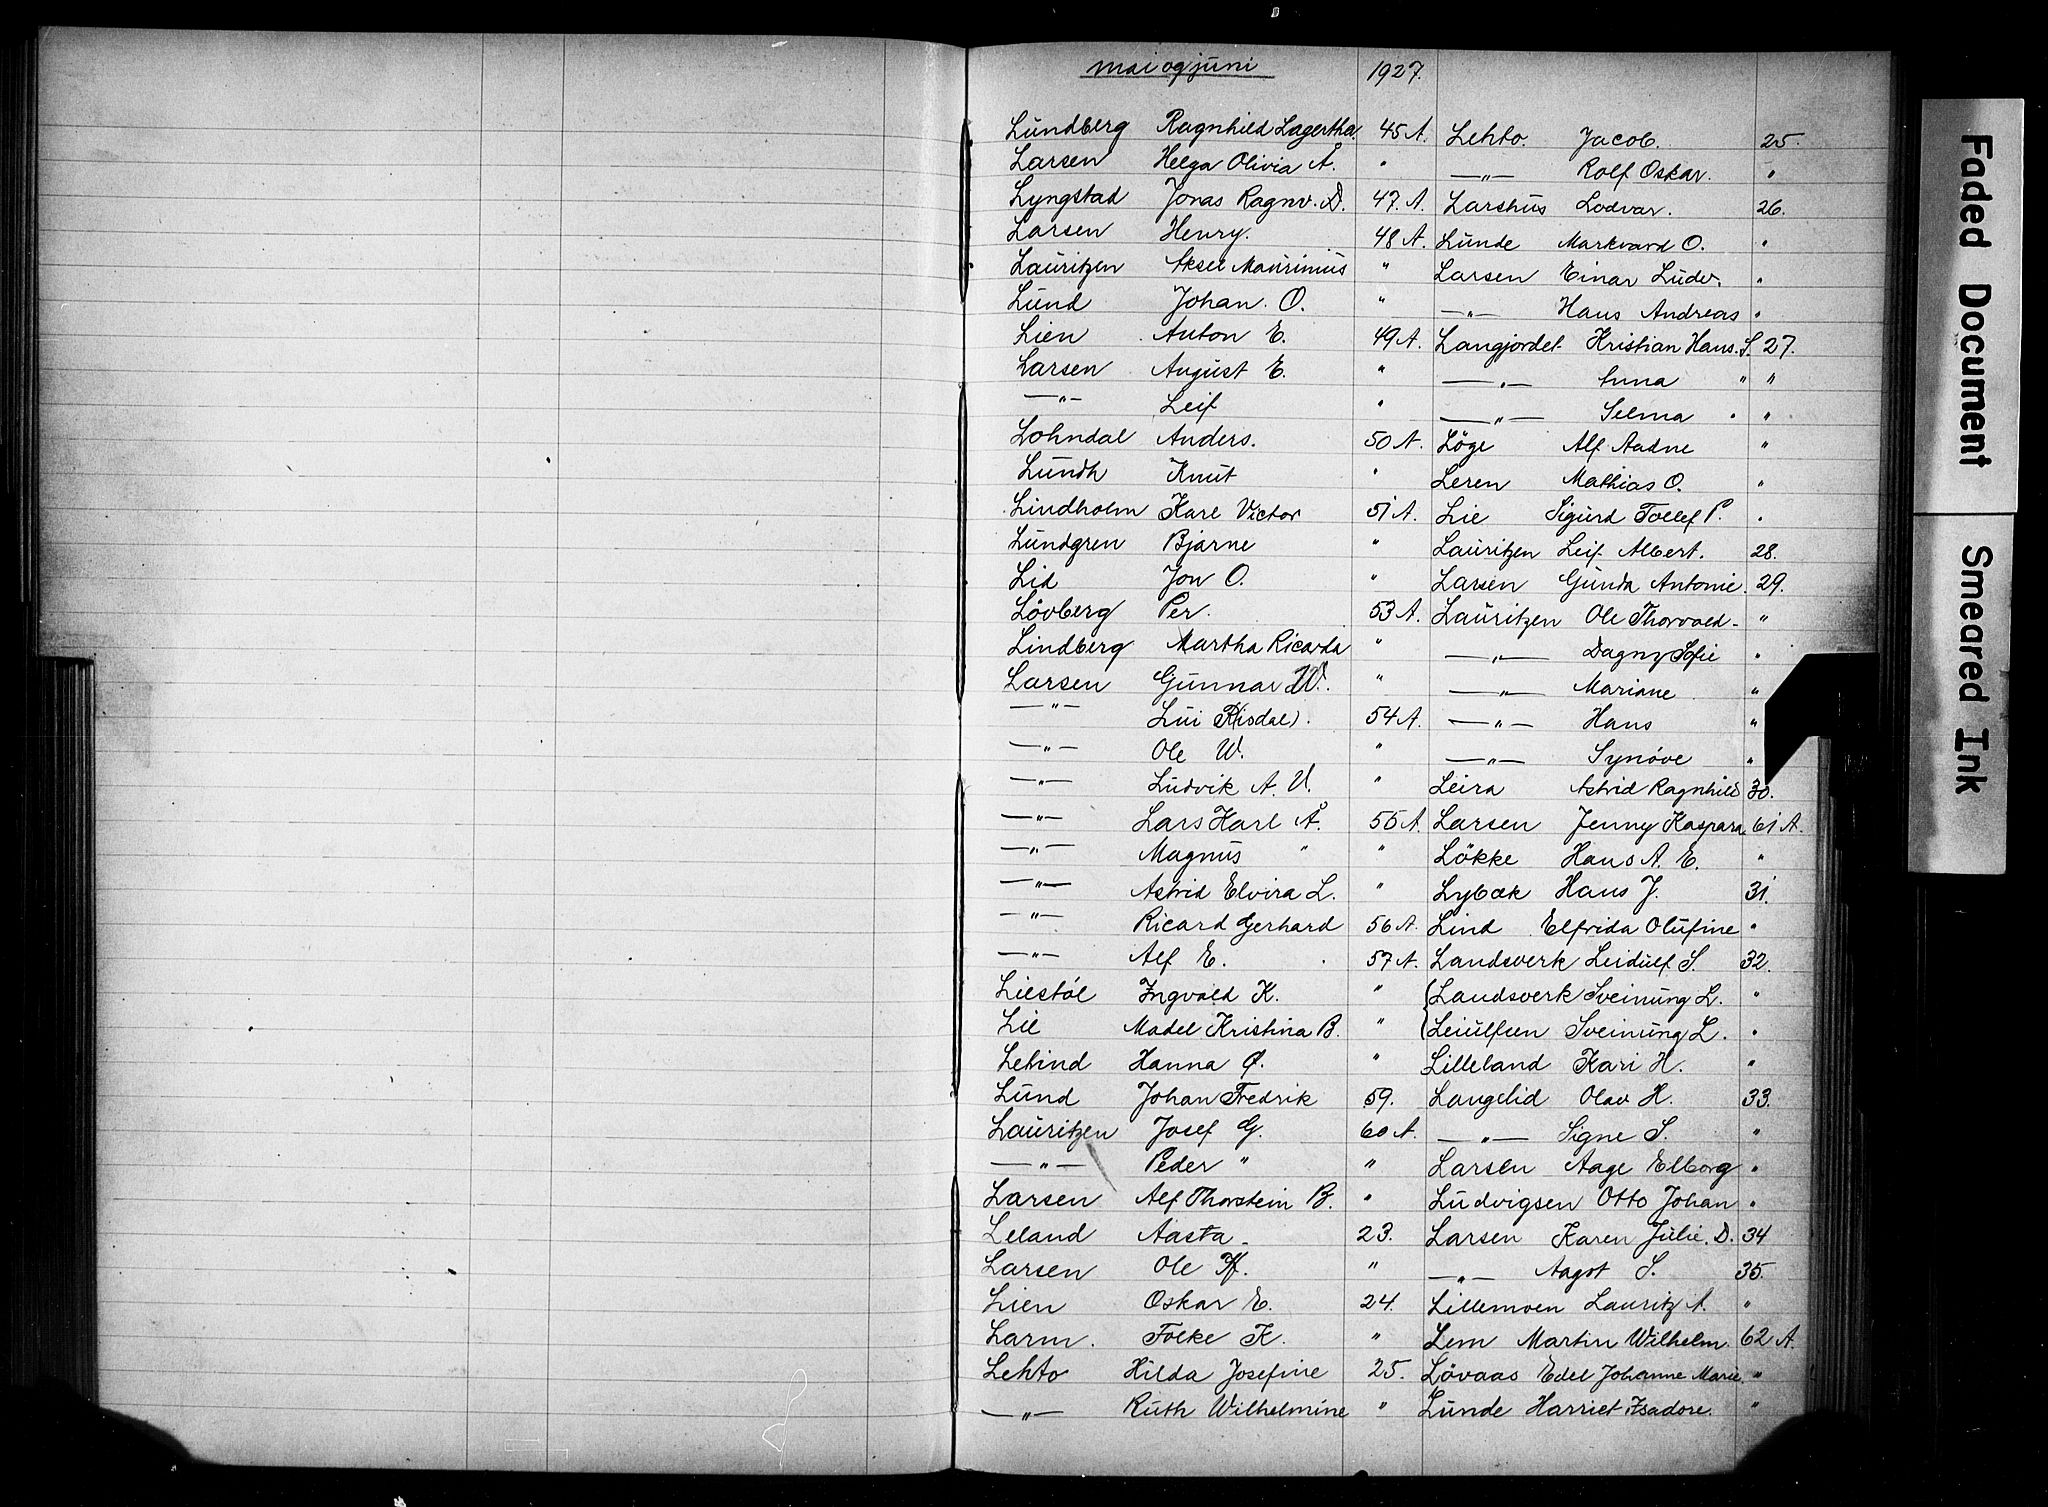 mai og juni 1927.
Lundberg Ragnhild Lagertha. 45 A.
Larsen Helga Olivia Å. "
Lyngstad Jonas Ragnv. D. 47. A.
Larsen Henry. 48 A.
Lauritzen Aksel Maurinius "
Lund Johan. O. "
Lien Anton E. 49 A.
Larsen August E. "
—"— Leif "
Lohndal Anders. 50 A.
Lundh Knut "
Lindholm Karl Victor 51 A.
Lundgren Bjarne "
Lid Jon O. "
Lövberg Per. 53 A.
Lindberg Martha Ricarda "
Larsen Gunnar W. "
—"— Lui (Risdal). 54 A.
—"— Ole W. "
—"— Ludvik A. U. "
—"— Lars Karl Å. 55 A.
—"— Magnus " "
—"— Astrid Elvira L. "
—"— Ricard Gerhard 56 A.
—"— Alf E. 57 A.
Liestöl Ingvald K. "
Lie Madel Kristina B. "
Lehind Hanna Ø. "
Lund Johan Fredrik 59.
Lauritzen Josef G. 60 A.
—"— Peder " "
Larsen Alf Thorstein B. "
Leland Aasta 23.
Larsen Ole K. "
Lien Oskar E. 24.
Larm. Folke K. "
Lehto Hilda Josefine 25.
—"— Ruth Wilhelmine "
Lehto. Jacob. 25.
—"— Rolf Oskar. "
Larshus Lodvar. 26.
Lunde Markvard O. "
Larsen Einar Ludv. "
—"— Hans Andreas "
Langjordet Kristian Hans. S. 27.
—"— Anna " "
—"— Selma " "
Löge Alf Aadne "
Leren Mathias O. "
Lie Sigurd Tollef P. "
Lauritzen Leif Albert. 28.
Larsen Gunda Antonie. 29.
Lauritzen Ole Thorvald "
—"— Dagny Sofie "
—"— Mariane "
—"— Hans "
—"— Synöve "
Leira Astrid Ragnhild 30.
Larsen Jenny Kaspara 61 A.
Lökke Hans A. E. "
Lybæk Hans J. 31.
Lind Elfrida Olufine "
Landsverk Leidulf S. 32.
Landsverk Sveinung L. "
Leiulfsen Sveinung L. "
Lilleland Kari H. "
Langelid Olav H. 33.
—"— Signe S. "
Larsen Aage Elborg "
Ludvigsen Otto Johan "
Larsen Karen Julie. D. 34
—"— Aagot S. 35.
Lillemoen Lauritz A. "
Lem Martin Wilhelm. 62 A.
Lövaas Edel Johanne Marie. "
Lunde Harriet Isadore. "
Faded Document
Smeared Ink